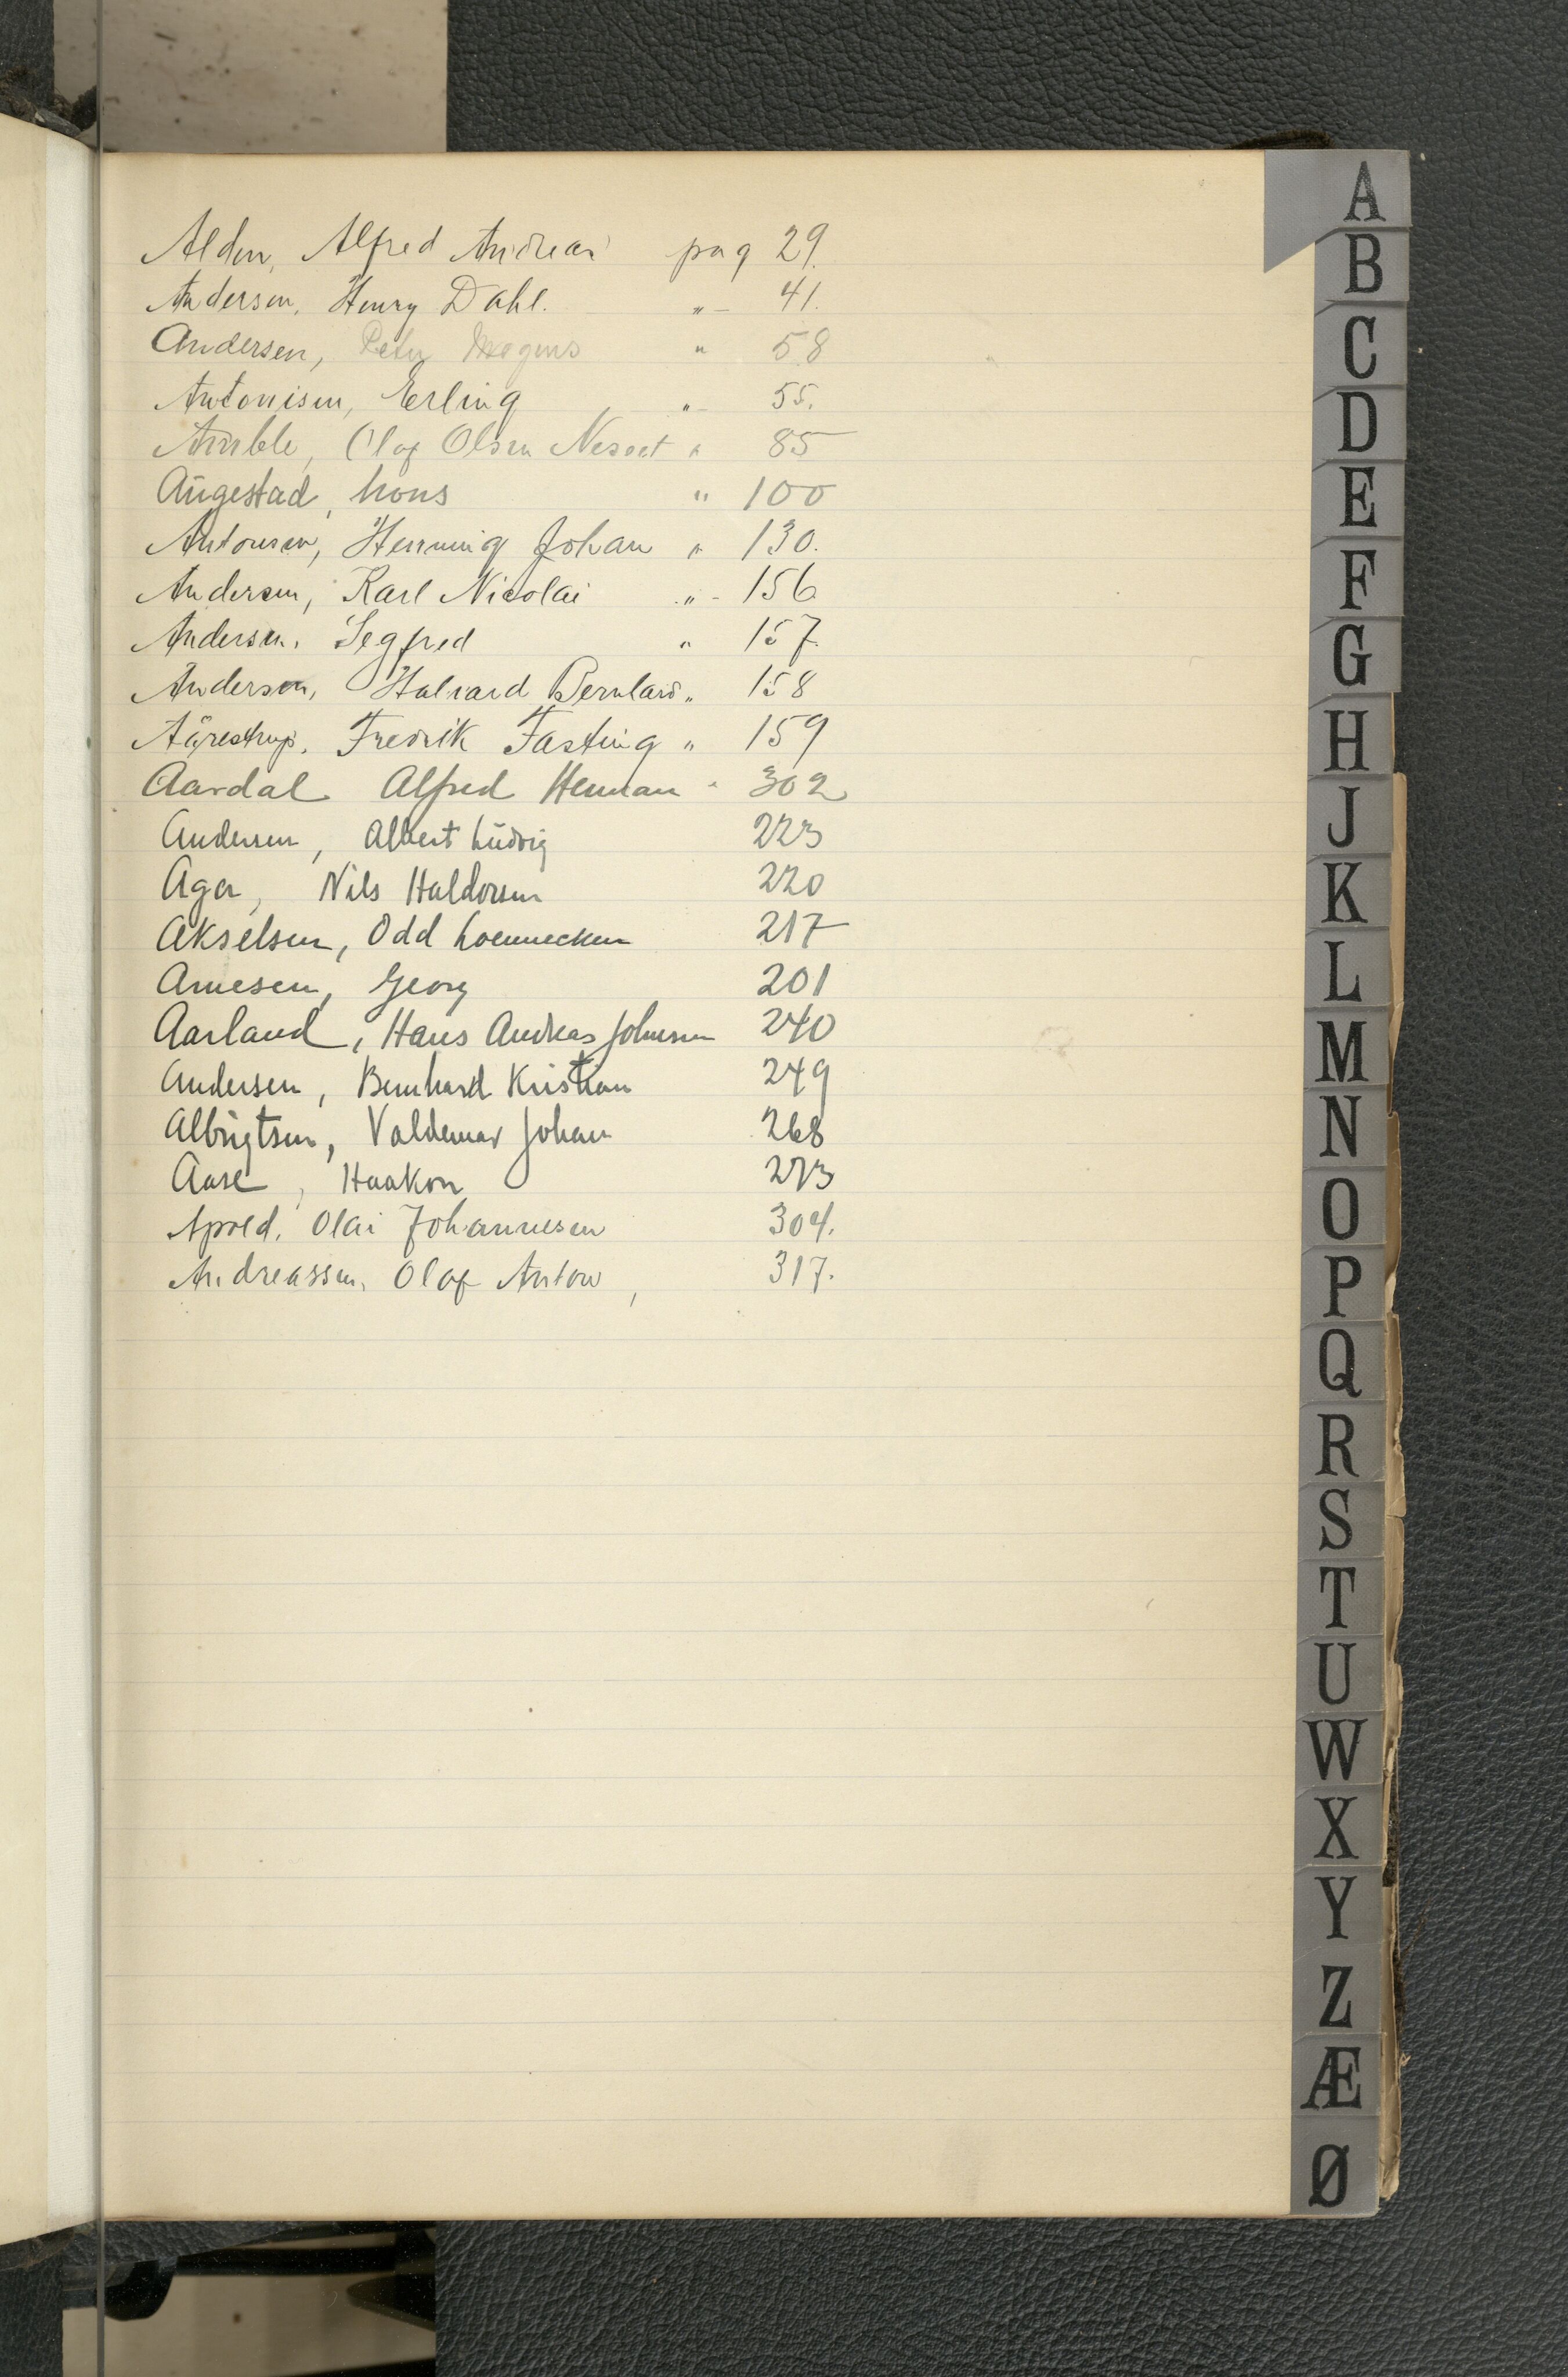 Alden, Alfred Andreas pag 29.
Andersen, Henry Dahl. " - 41.
Andersen, Peter Mogens " 58
Antonisen, Erling " - 55.
Amble, Olaf Olsen " 85
Augestad, Mons " 100
Antonsen, Henning Johan " 130.
Andersen, Karl Nicolai " - 156
Andersen, Segfred " 157.
Andersen, Halvard Bernhard " 158
Aagrestrup, Fredrik Fasting " 159
Aardal Alfred Herman " 302
Andersen, Albert Ludvig 223
Aga, Nils Haldorsen 220
Akselsen, Odd Loennecken 217
Arnesen, Georg 201
Aarland, Hans Andreas Johnsen 240
Andersen, Bernhard Kristian 249
Albrigtsen, Valdemar Johan 268
Aase, Haakon 273
Apold, Olai Johannesen 304.
Andreassen, Olaf Anton, 317.
A
B
C
D
E
F
G
H
J
K
L
M
N
O
P
Q
R
S
T
U
W
X
Y
Z
Æ
Ø